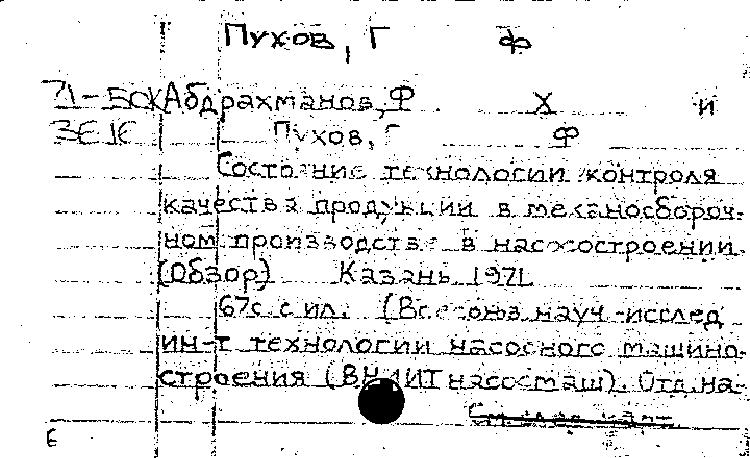 Пухов, Г Ф
71-БОК Абдрахманов, Ф Х и
ЗЕ1Е Пухов, Г Ф
Состояние технологии контроля
качества продукции в механосбороч-
ном производстве в насосостроении.
(Обзор) Казань 1971
67с. с ил. (Всесоюз науч-исслед
ин-т технологии насосного машино-
строения (ВНИИТнасосмаш). Отд. на-
См след карт.